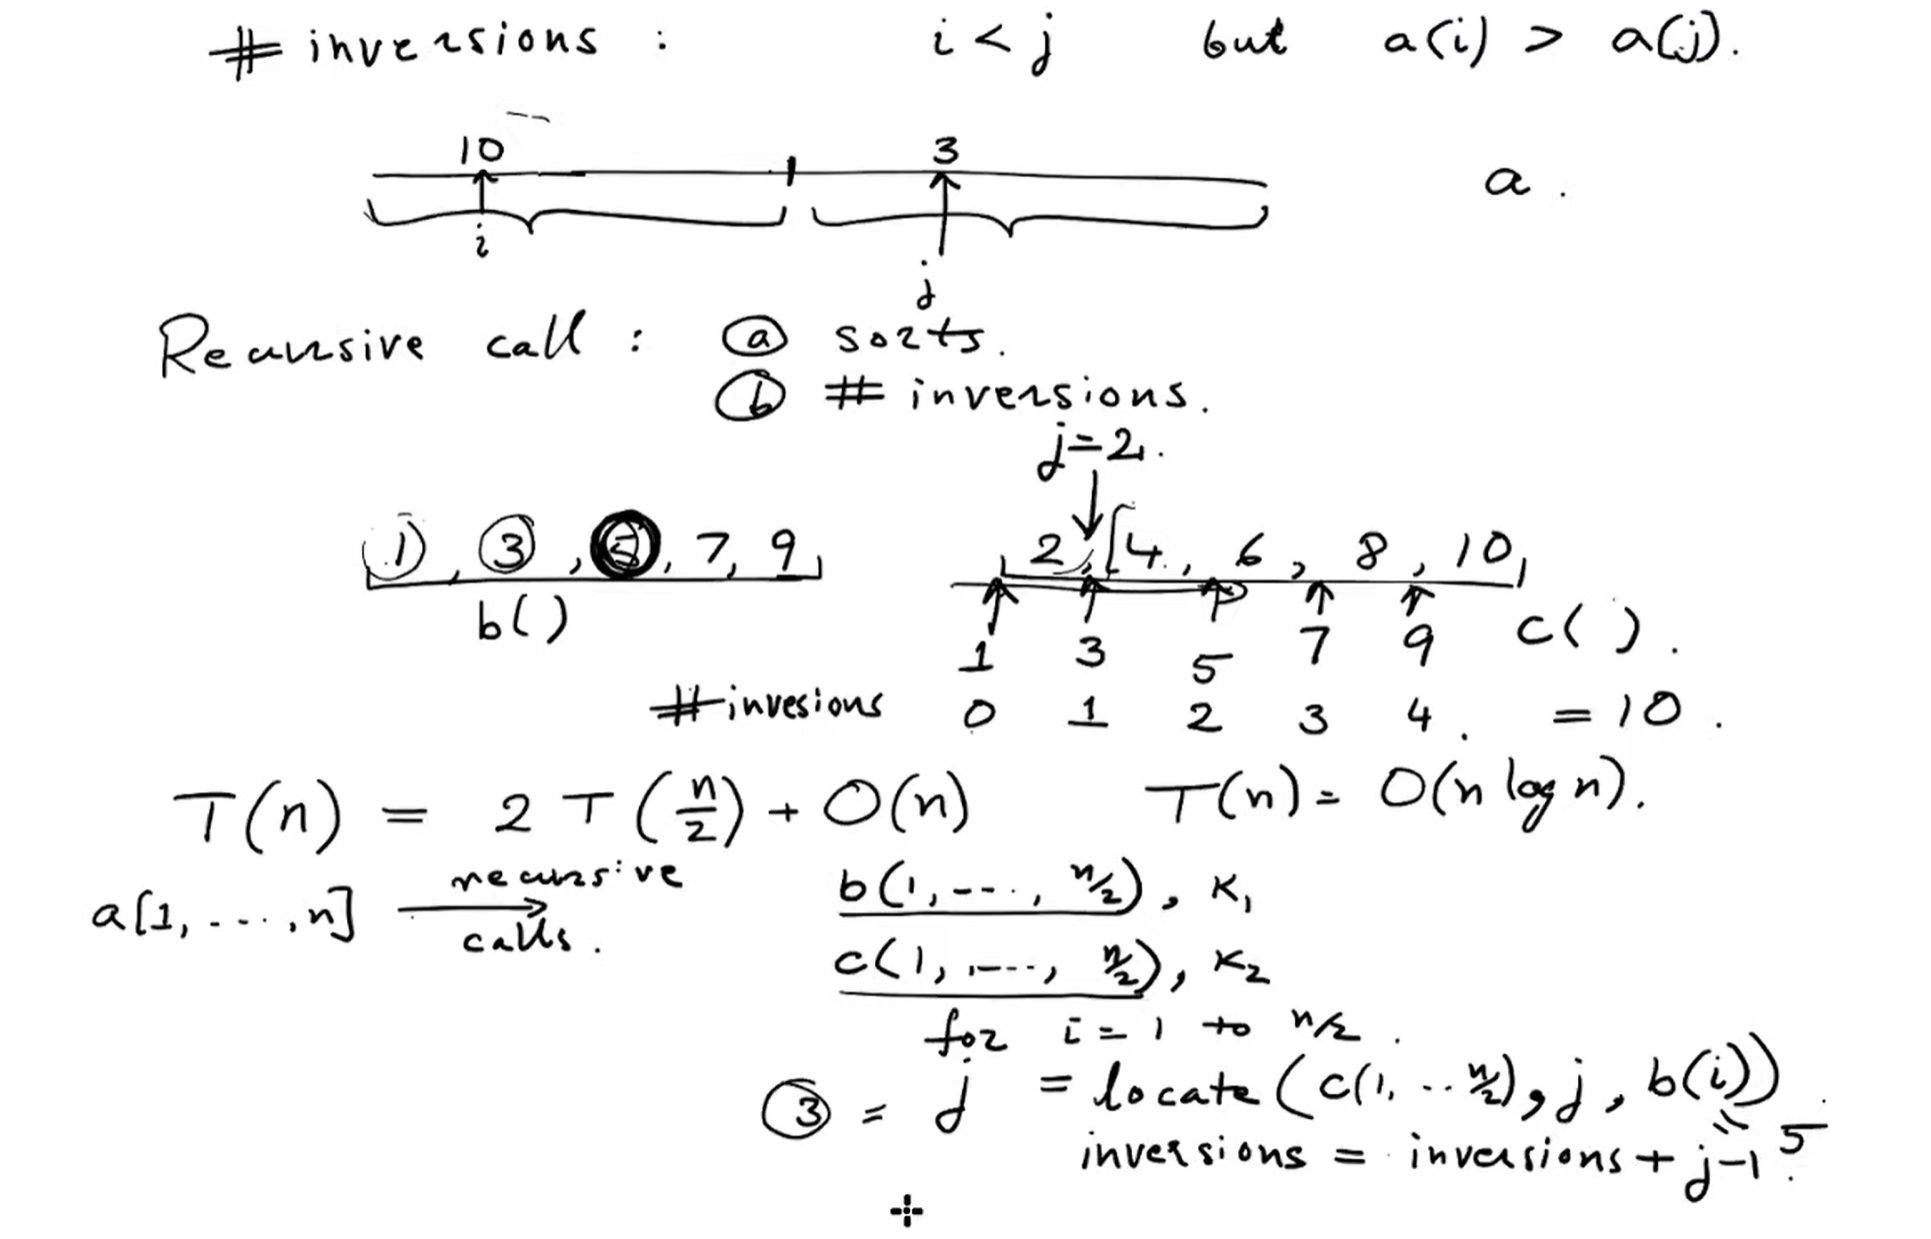 # inversions : i < j but a(i) > a(j).
10 3
a.
i
j
Recursive call : (a) sorts.
(b) # inversions.
j=2.
1, 3, 5, 7, 9 2, 4, 6, 8, 10,
b( ) c( ).
1 3 5 7 9
#invesions 0 1 2 3 4. = 10.
T(n) = 2T(n/2) + O(n) T(n) = O(n log n).
a[1, ...., n] recursive calls. b(1, ---., n/2), K1
c(1, .---., n/2), K2
for i = 1 to n/2.
3 = j = locate(c(1, .. n/2), j, b(i))
= 5
inversions = inversions + j-1.